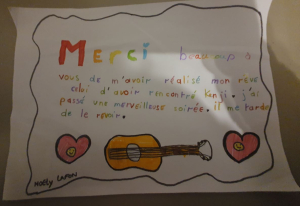 Merci beaucoup à
vous de m'avoir réalisé mon rêve
celui d'avoir rencontré Kenji. j'ai
passé une merveilleuse soirée. il me tarde
de le revoir.